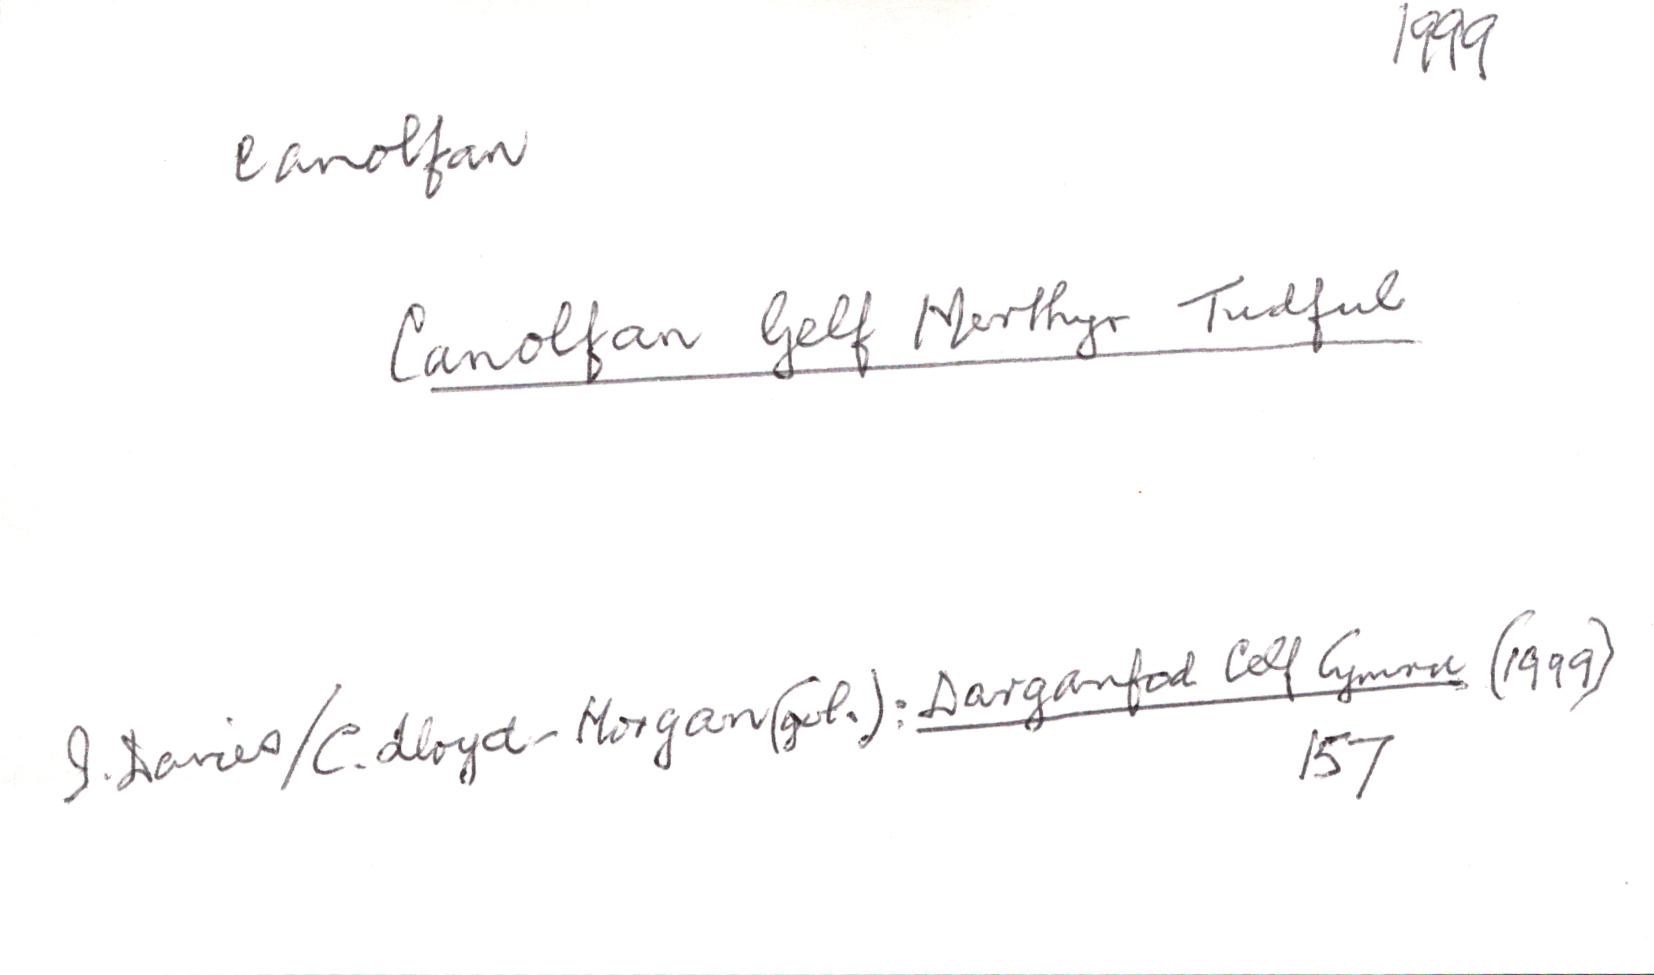 1999
canolfan
Canolfan Gelf Merthyr Tudful
I. Davies/C. Lloyd-Morgan (gol.): Darganfod Celf Cymru (1999)
157